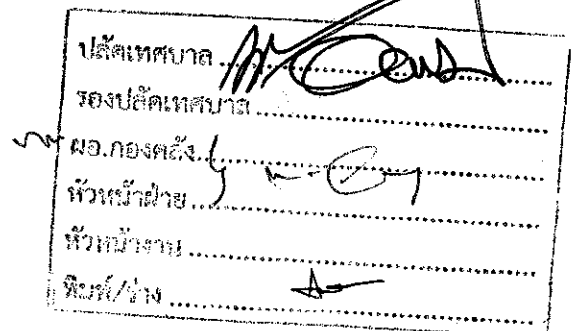 ปลัดเทศบาล
รองปลัดเทศบาล
ผอ.กองคลัง
หัวหน้าฝ่าย
หัวหน้างาน
พิมพ์/ร่าง